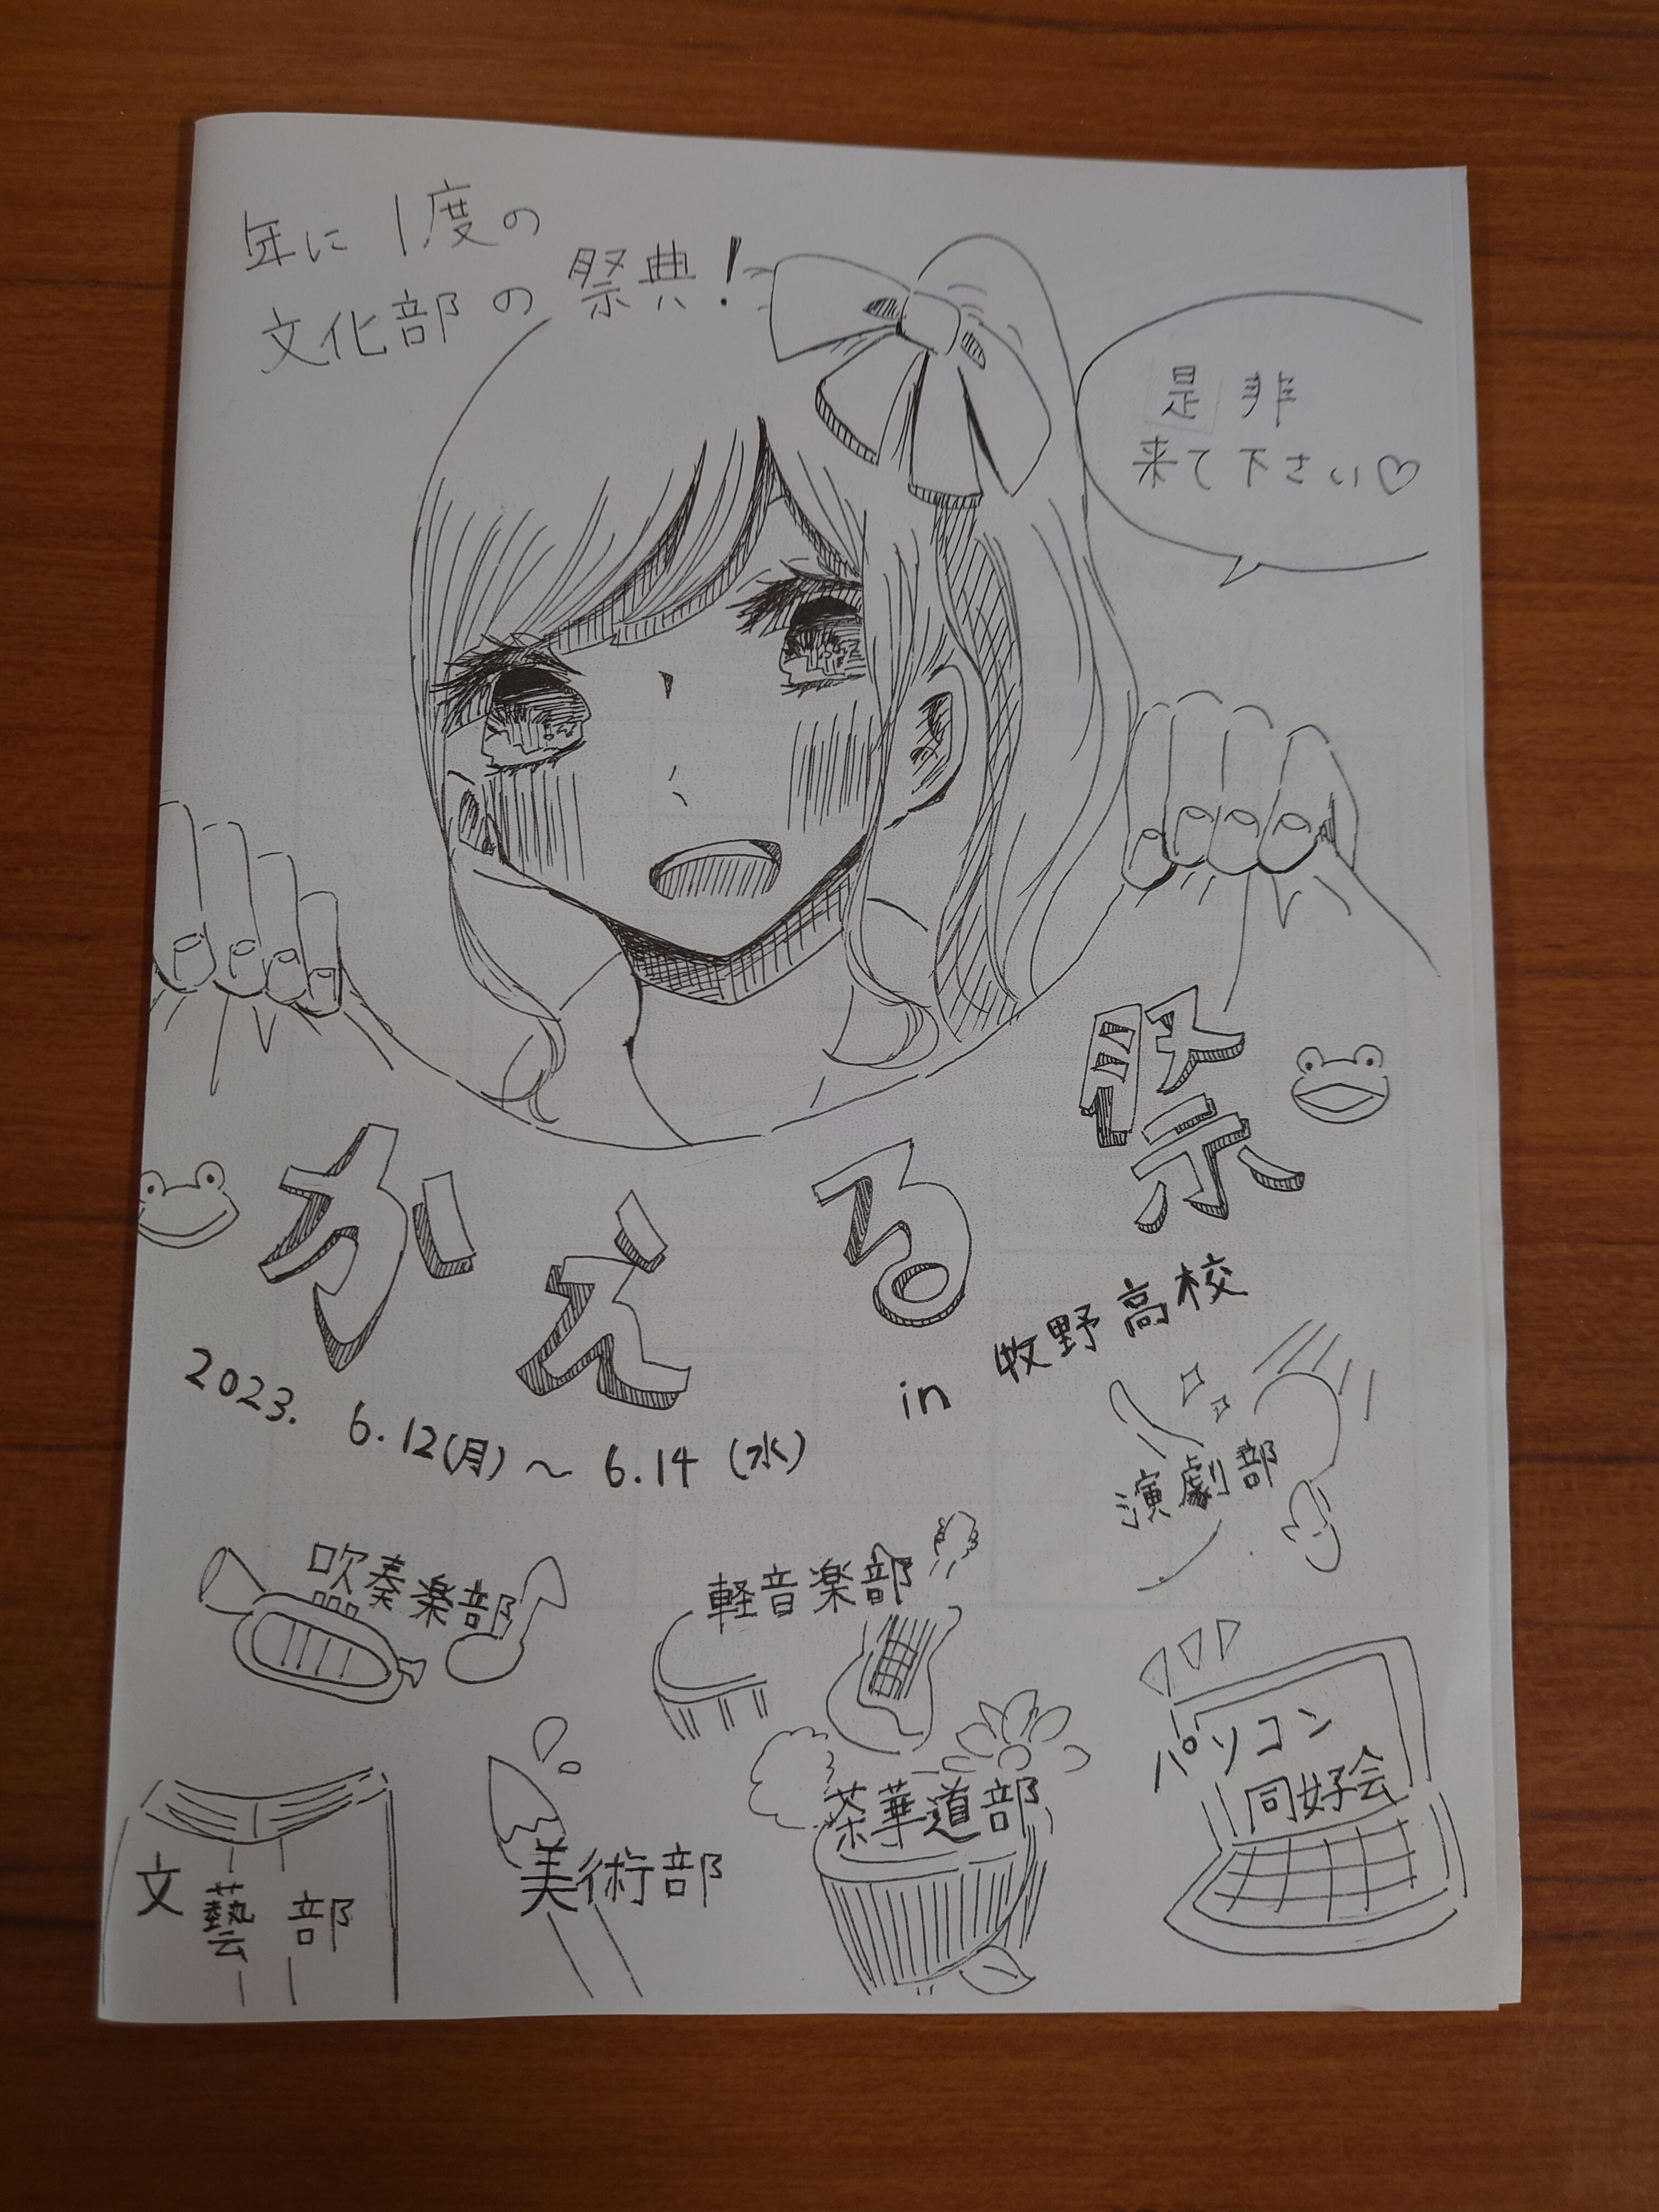 年に1度の
文化部の祭典!
是非
来て下さい♡
かえる祭
in 牧野高校
2023. 6.12(月)~6.14(水)
演劇部
吹奏楽部
軽音楽部
パソコン
同好会
茶華道部
美術部
文藝部